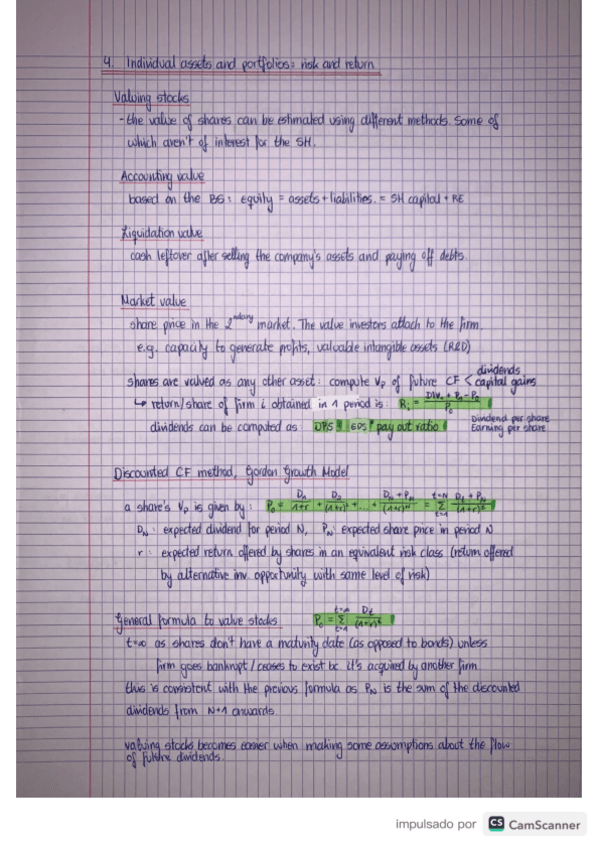 4. Individual assets and portfolios: risk and return
Valuing stocks
- the value of shares can be estimated using different methods. Some of
which aren't of interest for the SH.
Accounting value
based on the BS: equity = assets + liabilities. = SH capital + RE
Liquidation value
cash leftover after selling the company's assets and paying off debts.
Market value
share price in the 2ndary market. The value investors attach to the firm.
e.g. capacity to generate profits, valuable intangible assets (R&D)
shares are valued as any other asset: compute Vp of future CF < dividends capital gains
↳ return/share of firm i obtained in 1 period is: Ri = (DIV1 + P1 - P0) / P0
dividends can be computed as: DPS = EPS * pay out ratio
Dividend per share
Earning per share
Discounted CF method, Gordon Growth Model
a share's Vp is given by: P0 = D1/(1+r) + D2/(1+r)² + ... + (DN + PN)/(1+r)^N = Σ t=1 t=N (Dt + PN)/(1+r)^t
DN: expected dividend for period N, PN: expected share price in period N
r: expected return offered by shares in an equivalent risk class (return offered
by alternative inv. opportunity with same level of risk)
General formula to value stocks P0 = Σ t=1 t=∞ Dt/(1+r)^t
t=∞ as shares don't have a maturity date (as opposed to bonds) unless
firm goes bankrupt / ceases to exist bc it's acquired by another firm.
this is consistent with the previous formula as PN is the sum of the discounted
dividends from N+1 onwards.
valuing stocks becomes easier when making some assumptions about the flow
of future dividends.
impulsado por CS CamScanner